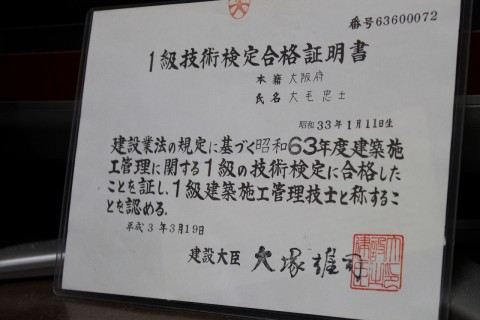 番号63600072
1級技術検定合格証明書
本籍 大阪府
氏名 大毛忠士
昭和33年1月11日生
建設業法の規定に基づく昭和63年度建築施
工管理に関する1級の技術検定に合格した
ことを証し、1級建築施工管理技士と称するこ
とを認める.
平成3年3月19日
建設大臣 大塚雄司